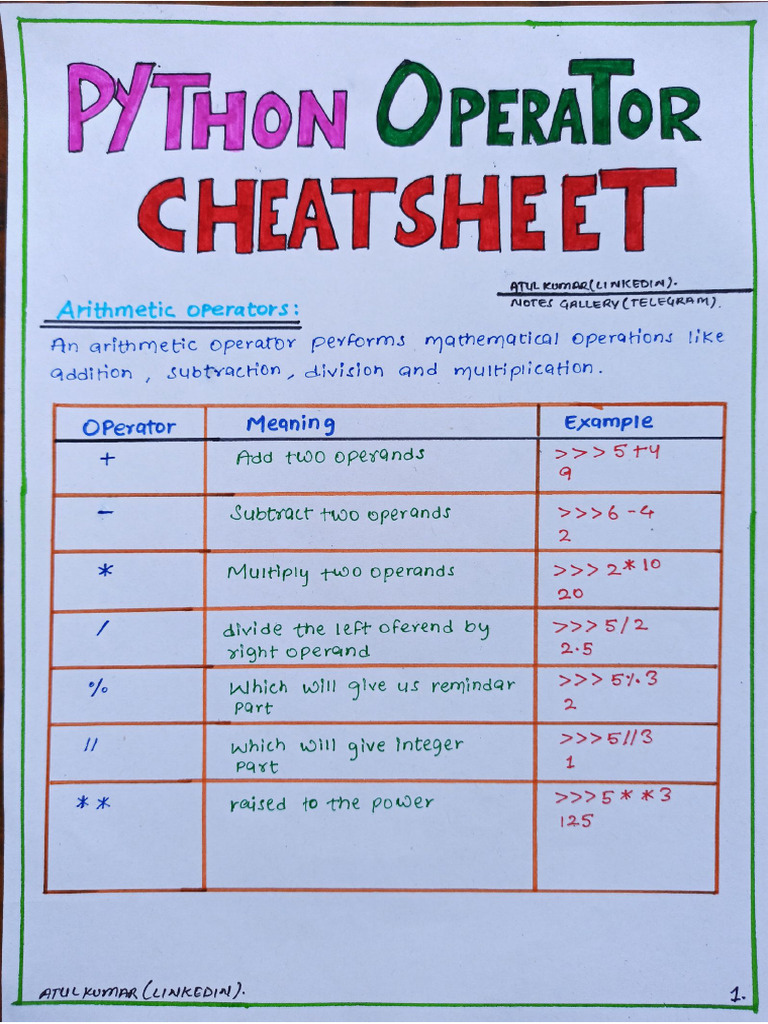 PYTHON OPERATOR
CHEATSHEET
ATUL KUMAR (LINKEDIN).
NOTES GALLERY (TELEGRAM).
Arithmetic operators:
An arithmetic operator performs mathematical operations like
addition, subtraction, division and multiplication.
Operator Meaning Example
+ Add two operands >>> 5+4
9
- Subtract two operands >>> 6-4
2
* Multiply two operands >>> 2*10
20
/ divide the left oferend by >>> 5/2
right operand 2.5
% Which will give us remindar >>> 5%3
part 2
// which will give integer >>> 5//3
part 1
** raised to the power >>> 5**3
125
ATUL KUMAR (LINKEDIN).
1.